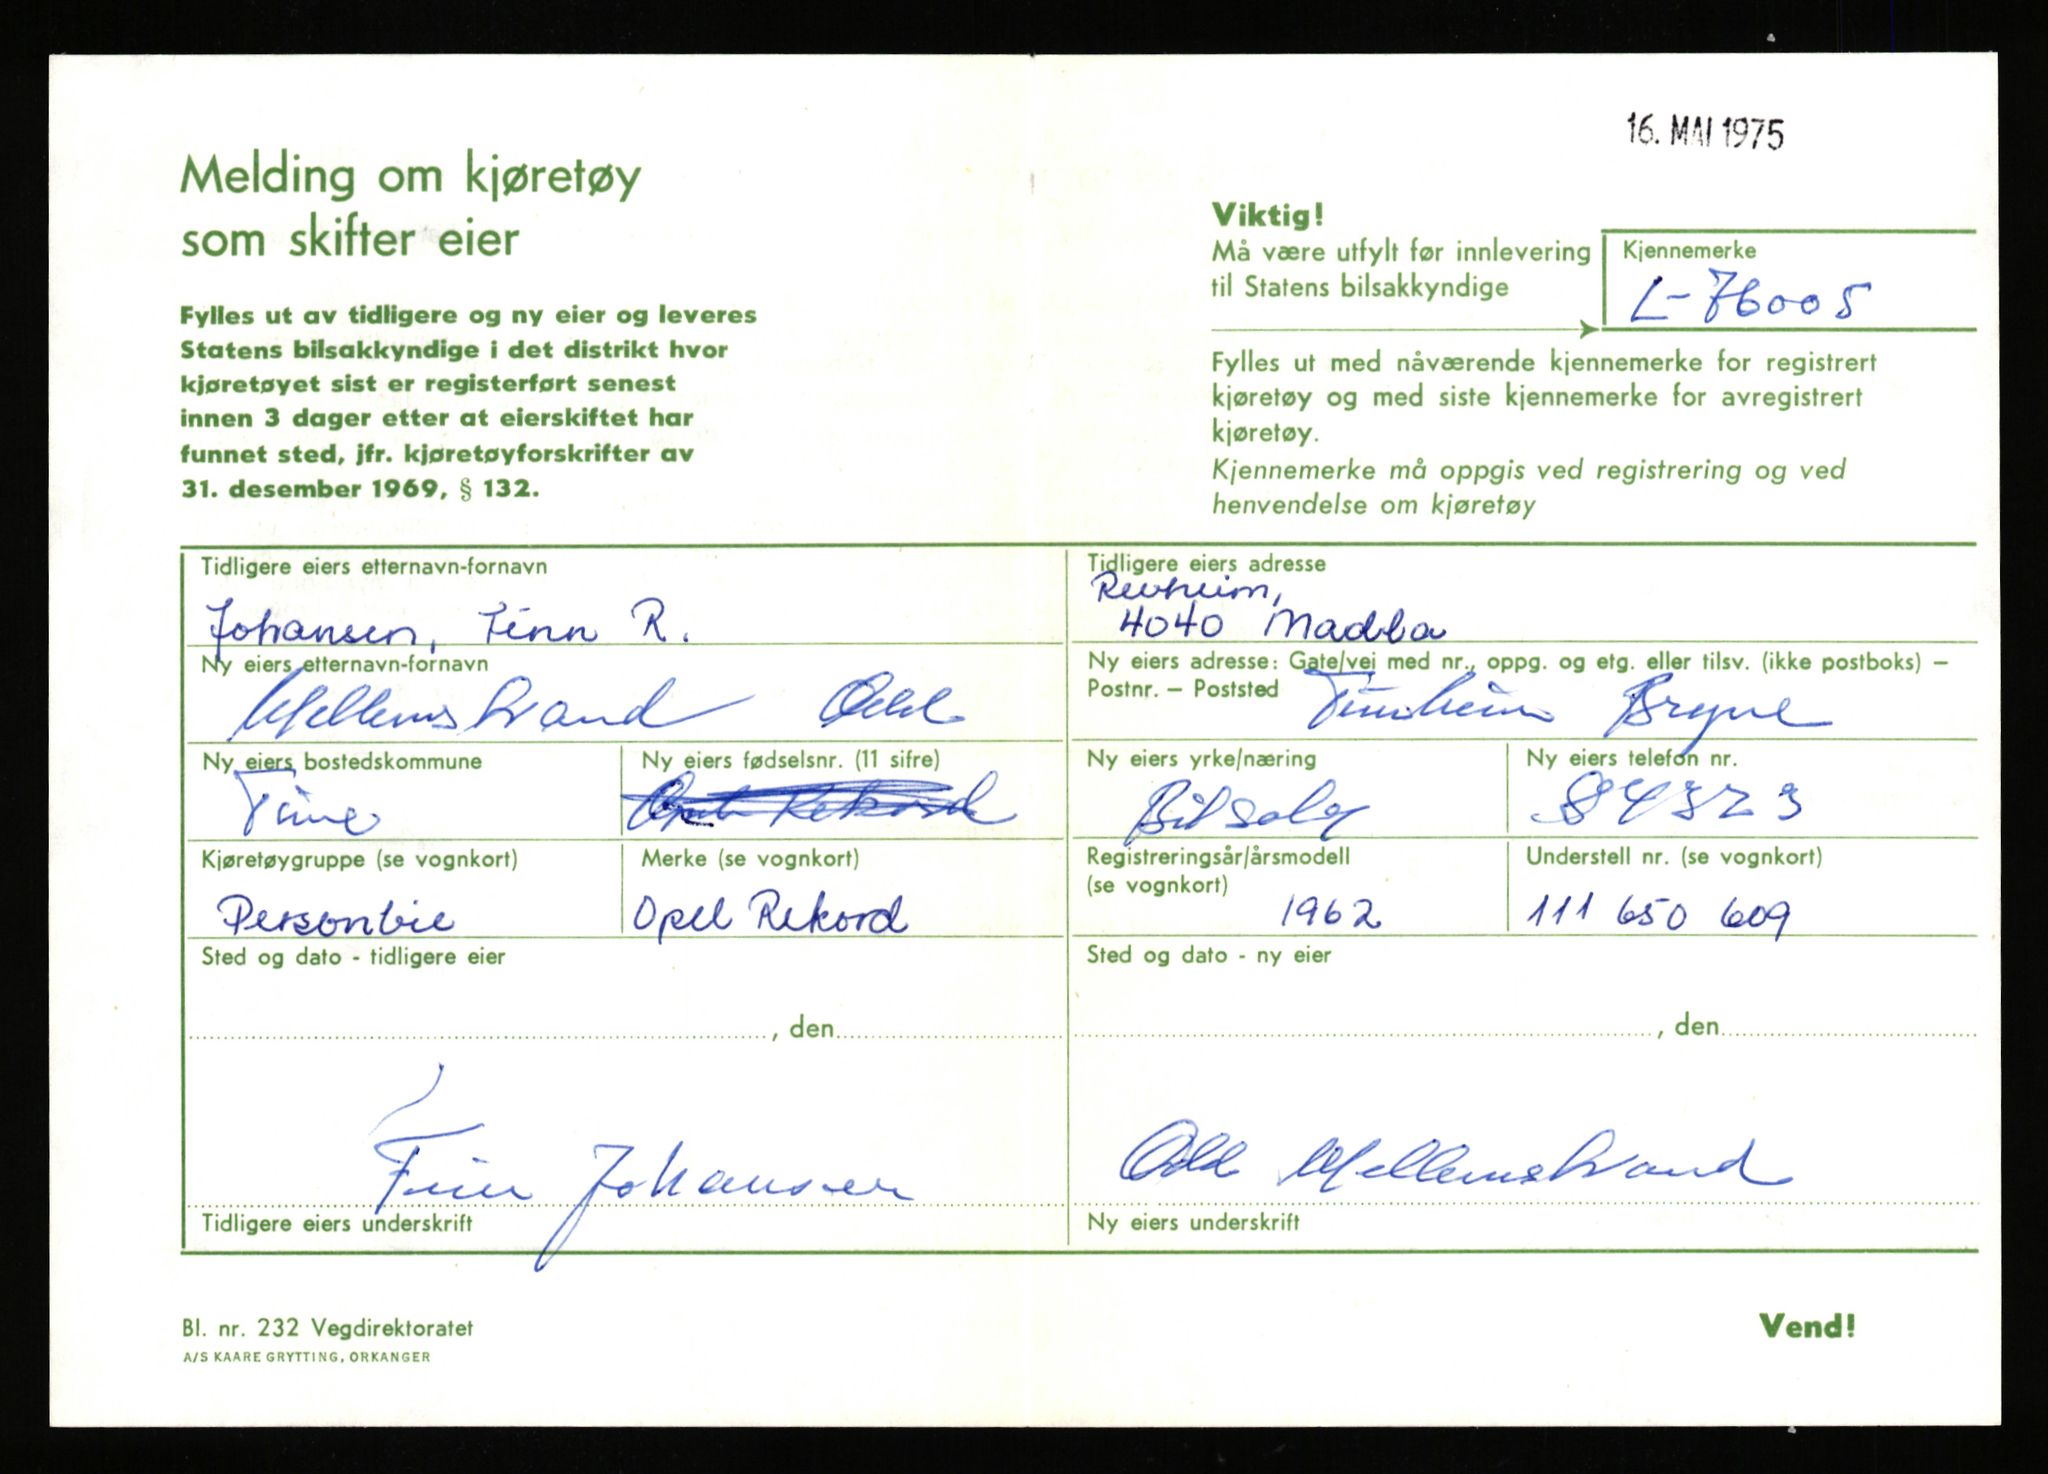 16. MAI 1975
Melding om kjøretøy
som skifter eier
Fylles ut av tidligere og ny eier og leveres
Statens bilsakkyndige i det distrikt hvor
kjøretøyet sist er registerført senest
innen 3 dager etter at eierskiftet har
funnet sted, jfr. kjøretøyforskrifter av
31. desember 1969, § 132.
Viktig!
Må være utfylt før innlevering
til Statens bilsakkyndige
Kjennemerke
L-76005
Fylles ut med nåværende kjennemerke for registrert
kjøretøy og med siste kjennemerke for avregistrert
kjøretøy.
Kjennemerke må oppgis ved registrering og ved
henvendelse om kjøretøy
Tidligere eiers etternavn-fornavn
Johansen, Finn R.
Tidligere eiers adresse
Revheim,
4040 Madla
Ny eiers etternavn-fornavn
Mellemstrand Odd
Ny eiers adresse: Gate/vei med nr., oppg. og etg. eller tilsv. (ikke postboks) –
Postnr. – Poststed
Timheim Bryne
Ny eiers bostedskommune
Time
Ny eiers fødselsnr. (11 sifre)
Opel Rekord
Ny eiers yrke/næring
Bilselg
Ny eiers telefon nr.
84323
Kjøretøygruppe (se vognkort)
Personbil
Merke (se vognkort)
Opel Rekord
Registreringsår/årsmodell
(se vognkort)
1962
Understell nr. (se vognkort)
111 650 609
Sted og dato - tidligere eier
, den
Sted og dato - ny eier
, den
Finn Johansen
Tidligere eiers underskrift
Odd Mellemstrand
Ny eiers underskrift
Bl. nr. 232 Vegdirektoratet
A/S KAARE GRYTTING, ORKANGER
Vend!